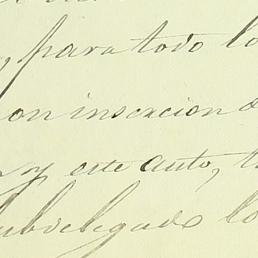 , para todo lo
on insercion d
y este auto, t
ubdelegado lo